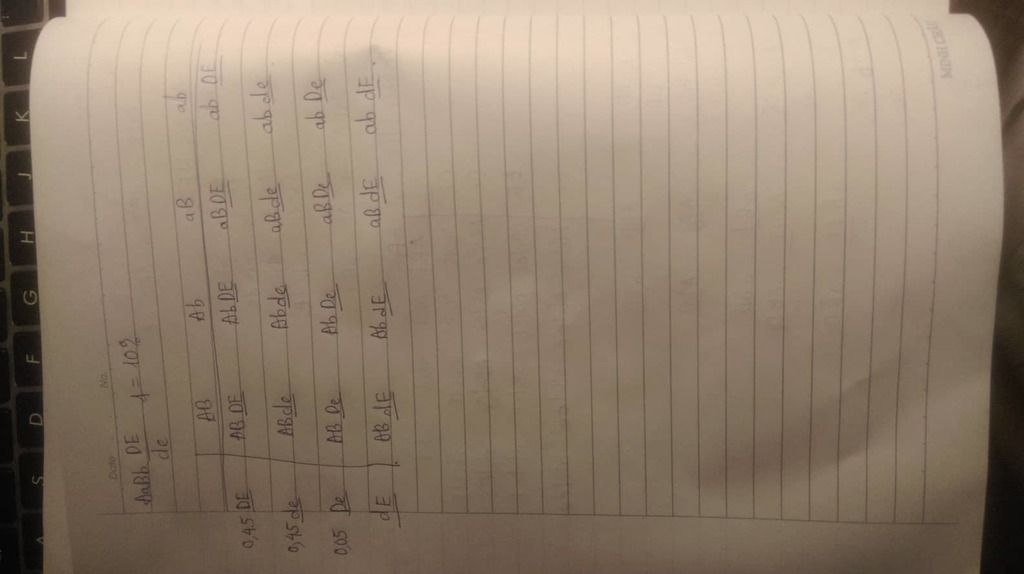 Date No.
AaBb DE f = 10%
de
AB Ab aB ab
0,45 DE AB DE Ab DE aB DE ab DE
0,45 de AB de Ab de aB de ab de
0,05 De AB De Ab De aB De ab De
dE AB dE Ab dE aB dE ab dE
A S D F G H J K L